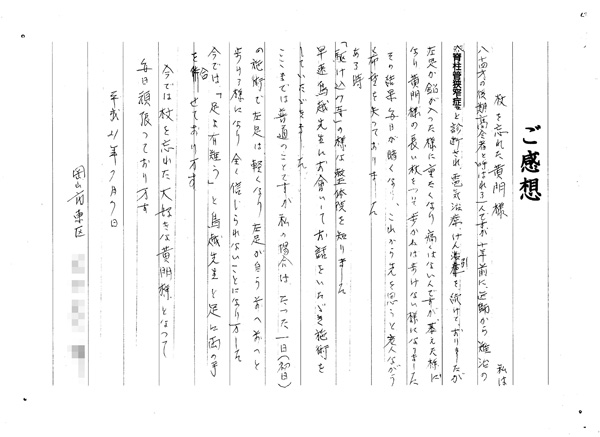 ご感想
杖を忘れた黄門様
私は
八十四才の後期高令者と呼ばれる一人ですが十年前に医師から難治の
脊柱管狭窄症と診断され電気治療けん引を続けておりましたが
左足が鉛が入った様に重たくなり痛くはないんですが萎えた様に
なり黄門様の長い杖をついて歩かねば歩けない様になりました
その結果毎日が暗くなりこれから先を思うと老人ながら
希望を失っておりました
ある時
「駆け込み寺」の様な整体院を知りました
早速鳥越先生にお会いしてお話をいただき施術を
していただきました
ここまでは普通のことですが私の場合はたった一日(初日)
の施術で左足は軽くなり左足が自う前へ前へと
歩ける様になり全く信じられないことになりました
今では「足よ有難う」と鳥越先生と足に両の手
を合せております
今では杖を忘れた大好きな黄門様となって
毎日頑張っております
平成21年7月7日
岡山市東区